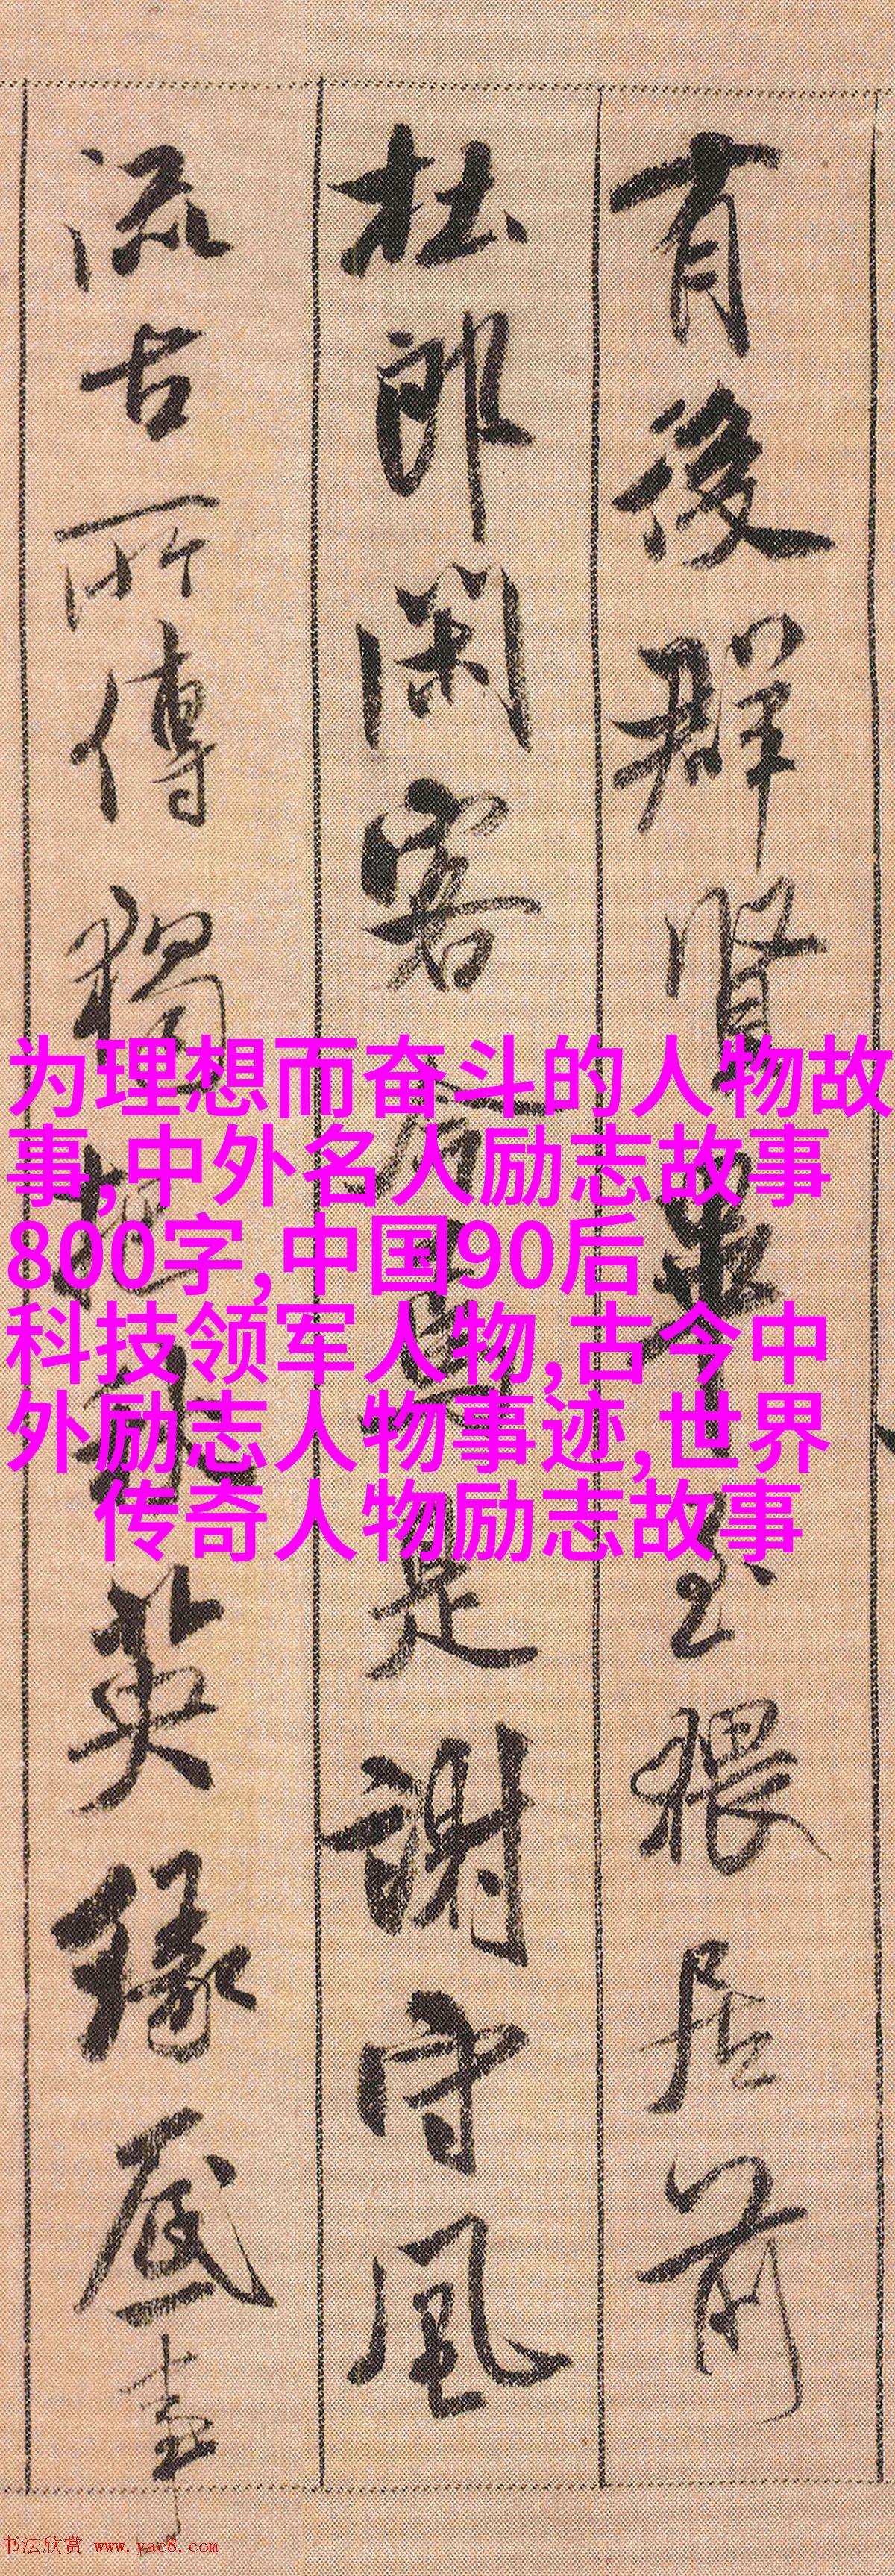 有後群賢畢至猥居前
杜郎閑客今焉是謝守風
流古所傳獨把秋英緣底事
为理想而奋斗的人物故
事,中外名人励志故事
800字,中国90后
科技领军人物,古今中
外励志人物事迹,世界
传奇人物励志故事
书法欣赏 www.yac8.com